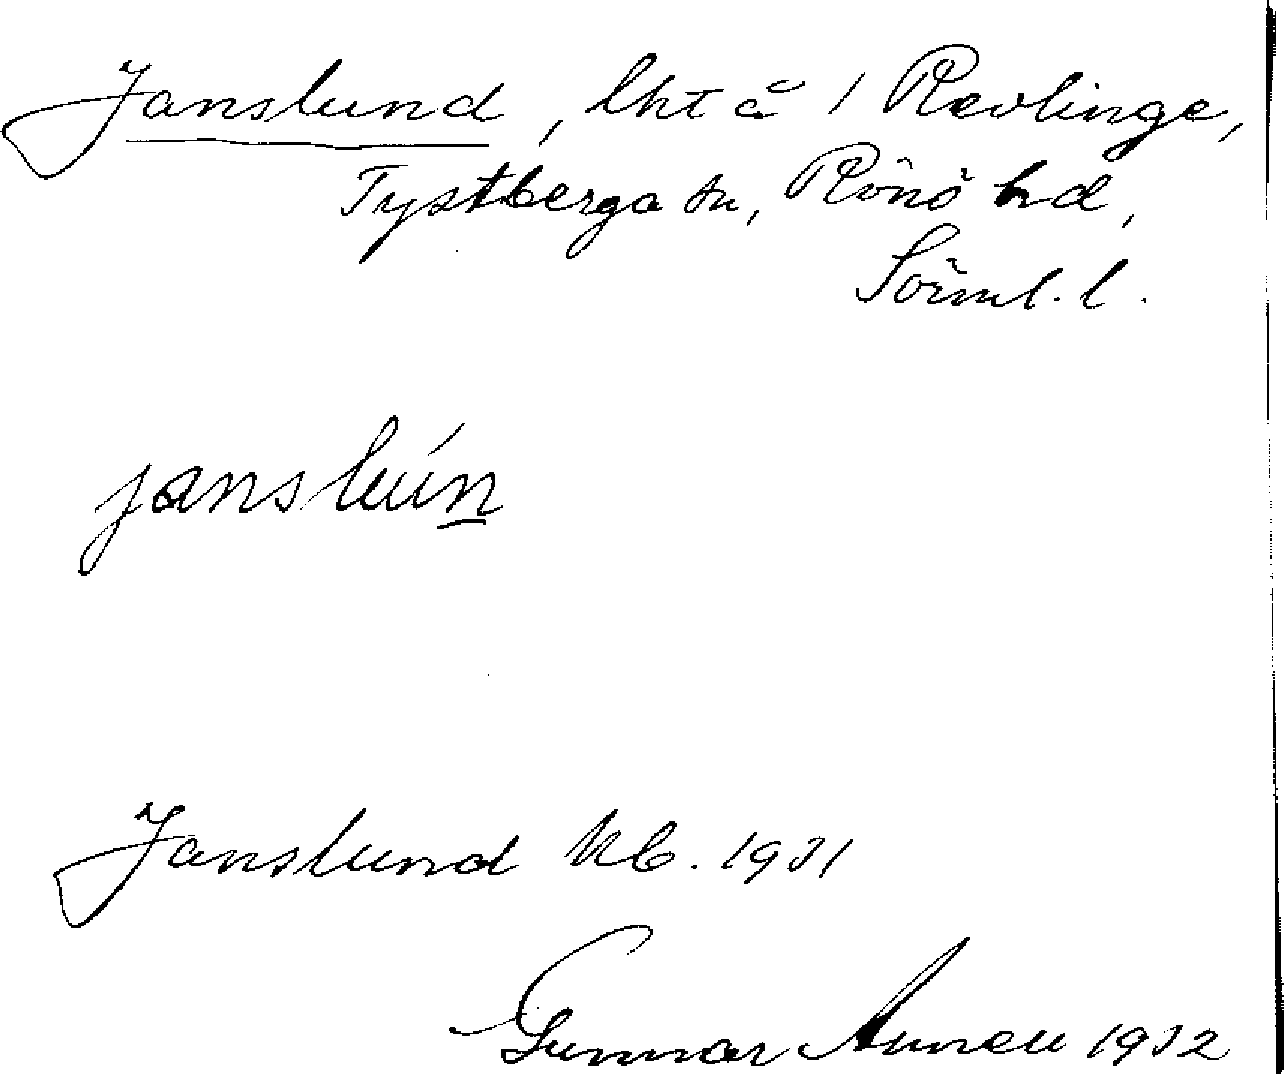 Janslund, lht å 1 Revlinge,
Tystberga sn, Rönö hd,
Sörml. l.
janslún̲
Janslund kb. 1931
Gunnar 1932